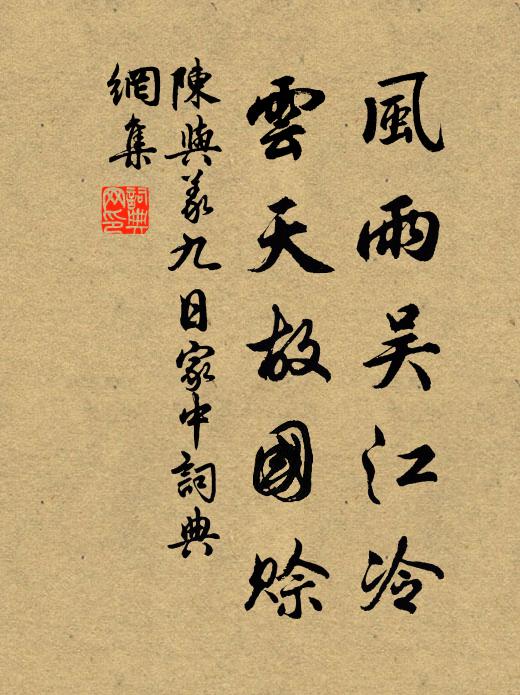 風雨吴江冷
雲天故國赊
陳與義九日家中詞典
網集
詞典
网印